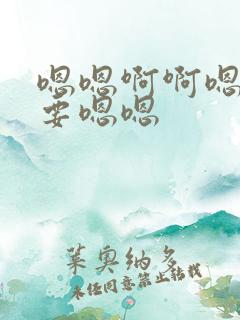 嗯嗯啊啊嗯
要嗯嗯
莱奥纳多
未经同意禁止转载